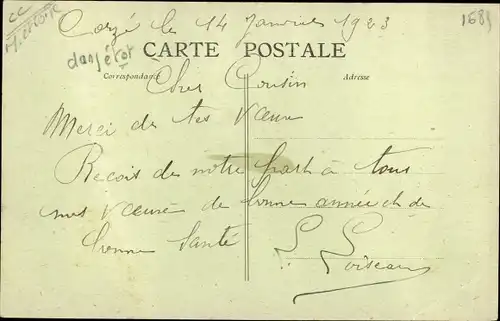 Corzé le 14 Janvier 1923
1685
CC
CARTE POSTALE
danjétot
Correspondance
Adresse
Cher Cousin
Merci de tes Vœux
Recois de notre part à tous
nos Vœux de bonne année et de
bonne Santé
L. Loiseau